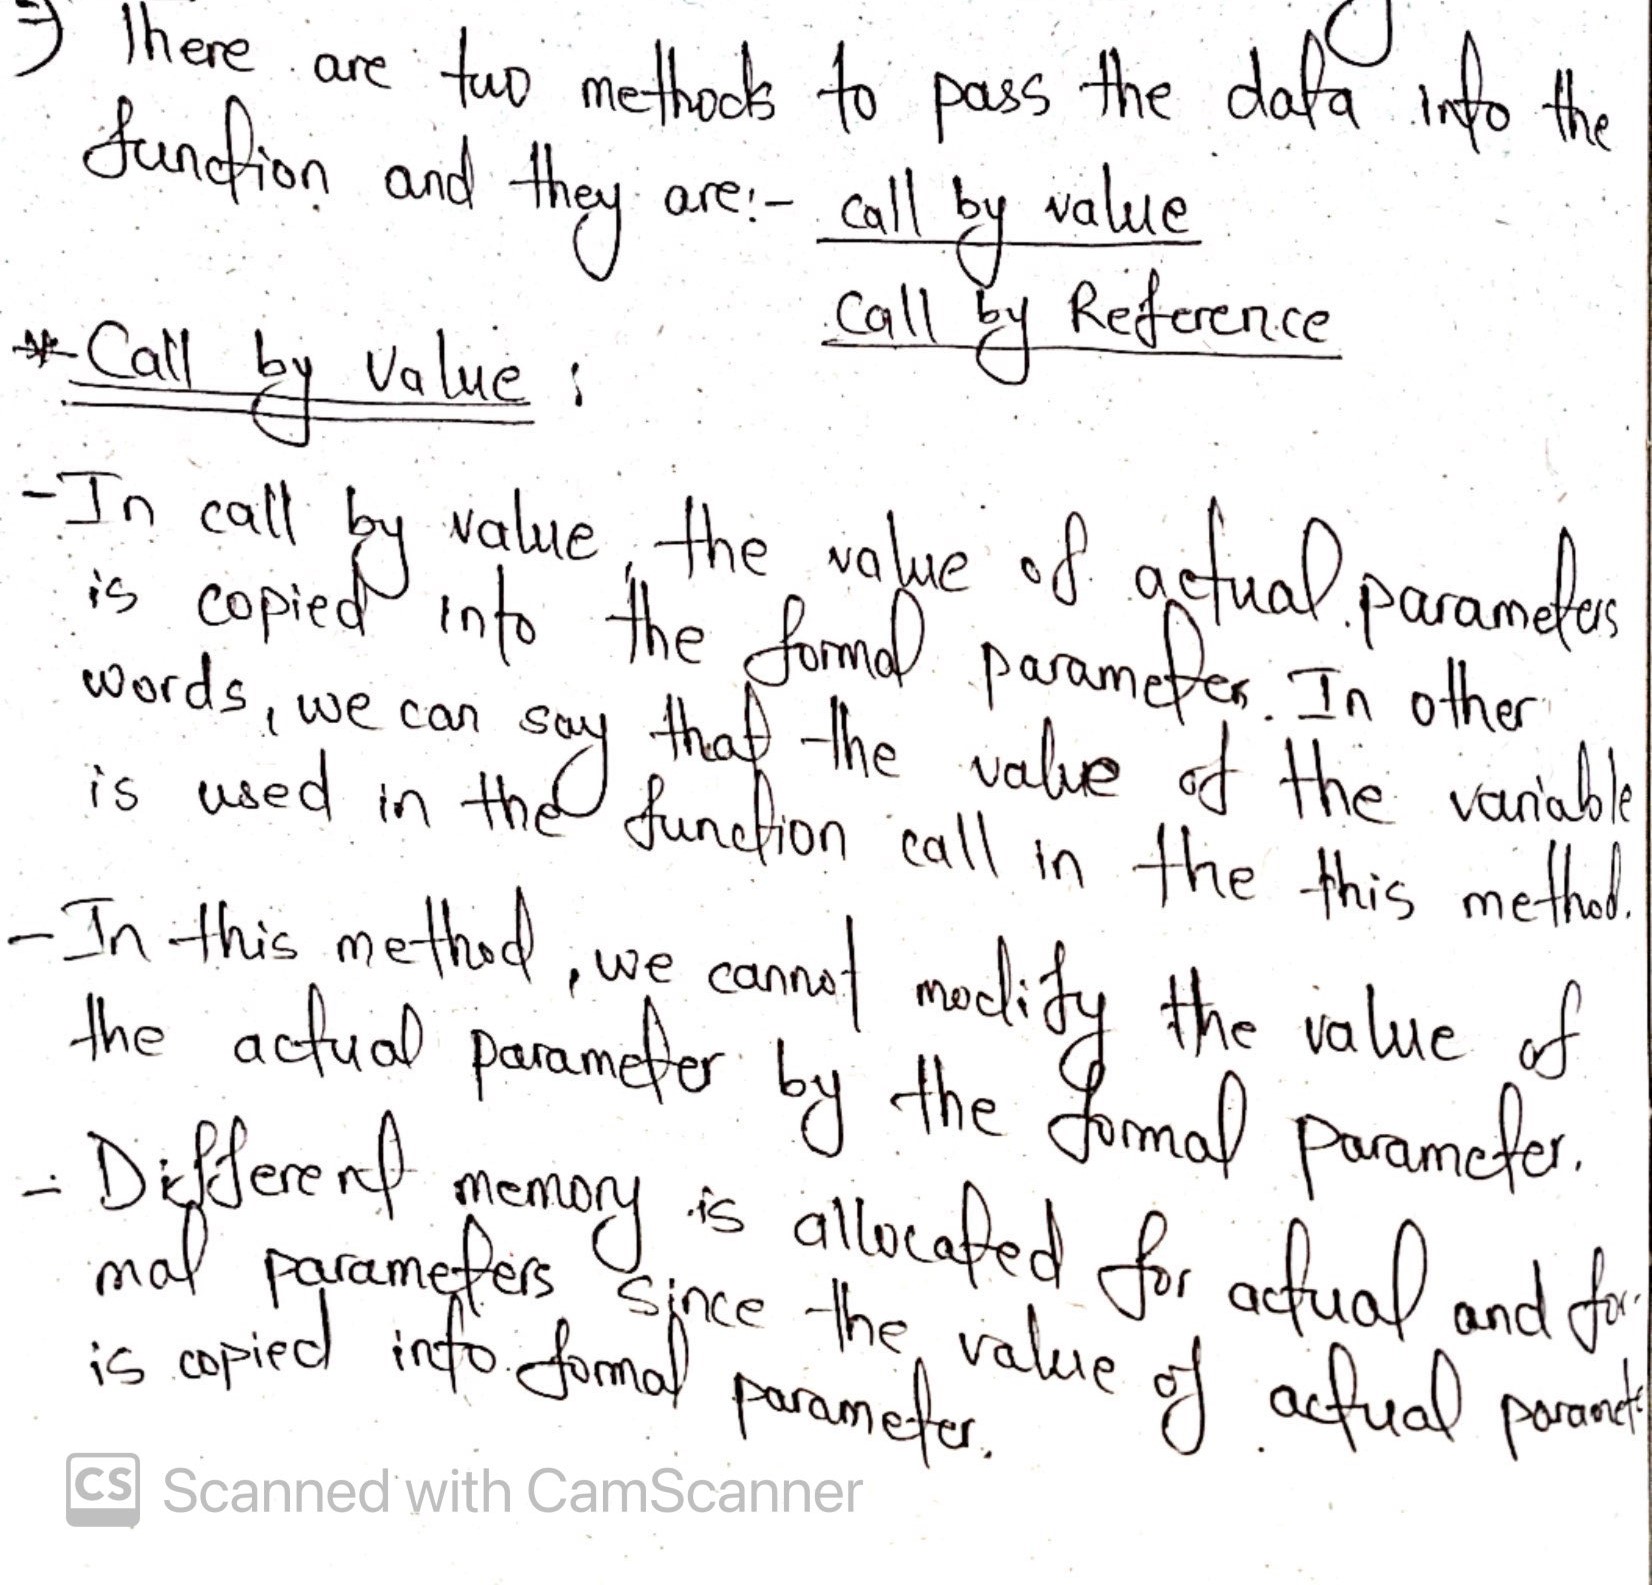 ⇒ There are two methods to pass the data into the
function and they are:- call by value
Call by Reference
* Call by Value :
- In call by value, the value of actual parameters
is copied into the formal parameter. In other
words, we can say that the value of the variable
is used in the function call in the this method.
- In this method, we cannot modify the value of
the actual parameter by the formal parameter.
- Different memory is allocated for actual and for-
mal parameters since the value of actual paramete
is copied into formal parameter.
CS Scanned with CamScanner